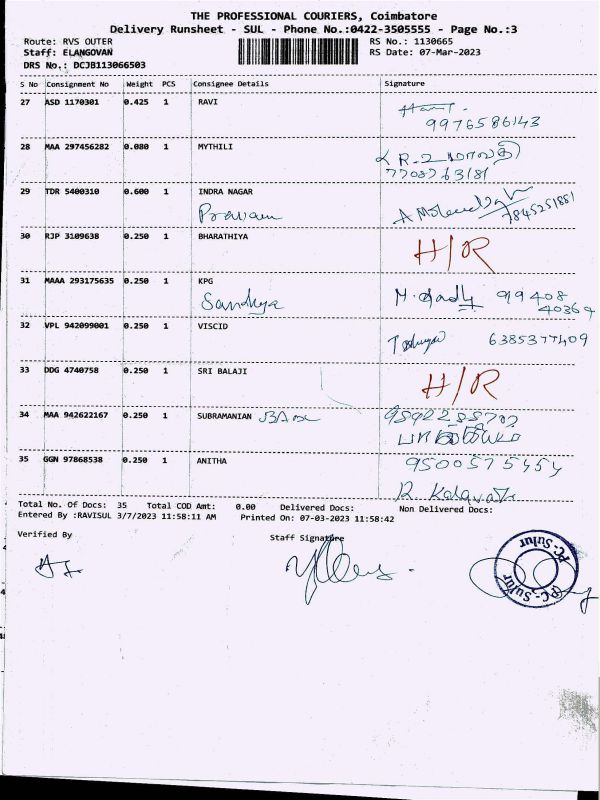 THE PROFESSIONAL COURIERS, Coimbatore
Delivery Runsheet - SUL - Phone No.:0422-3505555 - Page No.:3
Route: RVS OUTER
Staff: ELANGOVAN
DRS No.: DCJB113066503
RS No.: 1130665
RS Date: 07-Mar-2023
S No Consignment No Weight PCS Consignee Details Signature
27 ASD 1170301 0.425 1 RAVI
9976586143
28 MAA 297456282 0.080 1 MYTHILI
29 TDR 5400310 0.600 1 INDRA NAGAR
7845251881
30 RJP 3109638 0.250 1 BHARATHIYA H/R
31 MAAA 293175635 0.250 1 KPG
Sandhya 99408
40369
32 VPL 942099001 0.250 1 VISCID
6385377409
33 DDG 4740758 0.250 1 SRI BALAJI H/R
34 MAA 942622167 0.250 1 SUBRAMANIAN
35 GGN 97868538 0.250 1 ANITHA 9500575454
Total No. Of Docs: 35 Total COD Amt: 0.00 Delivered Docs: Non Delivered Docs:
Entered By :RAVISUL 3/7/2023 11:58:11 AM Printed On: 07-03-2023 11:58:42
Verified By Staff Signature
PC-Sulur
PC-Sulur